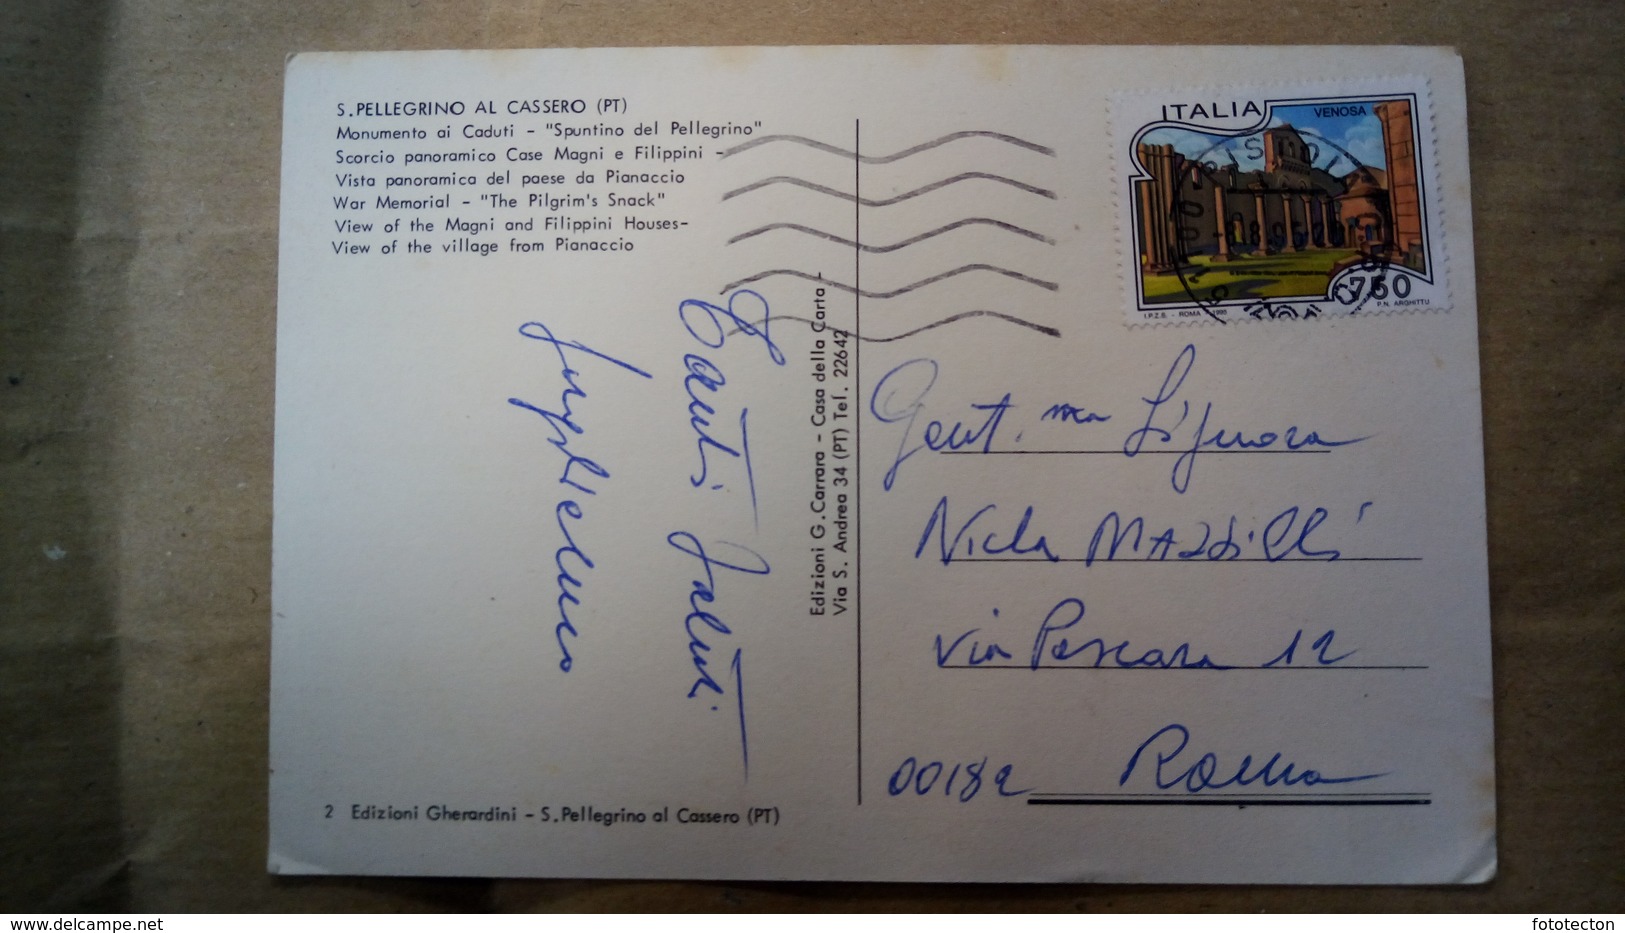 S.PELLEGRINO AL CASSERO (PT)
Monumento ai Caduti - "Spuntino del Pellegrino"
Scorcio panoramico Case Magni e Filippini -
Vista panoramica del paese da Pianaccio
War Memorial - "The Pilgrim's Snack"
View of the Magni and Filippini Houses-
View of the village from Pianaccio
Tanti Saluti
Edizioni G.Carrara - Casa della Carta -
Via S. Andrea 34 (PT) Tel. 22642
2 Edizioni Gherardini - S.Pellegrino al Cassero (PT)
ITALIA
VENOSA
750
P.N. ARGHITTU
I.P.Z.S. - ROMA - 1995
Gent.ma Signora
Nicla
Via Pescara 12
00182 Roma
delcampe.net
fototecton